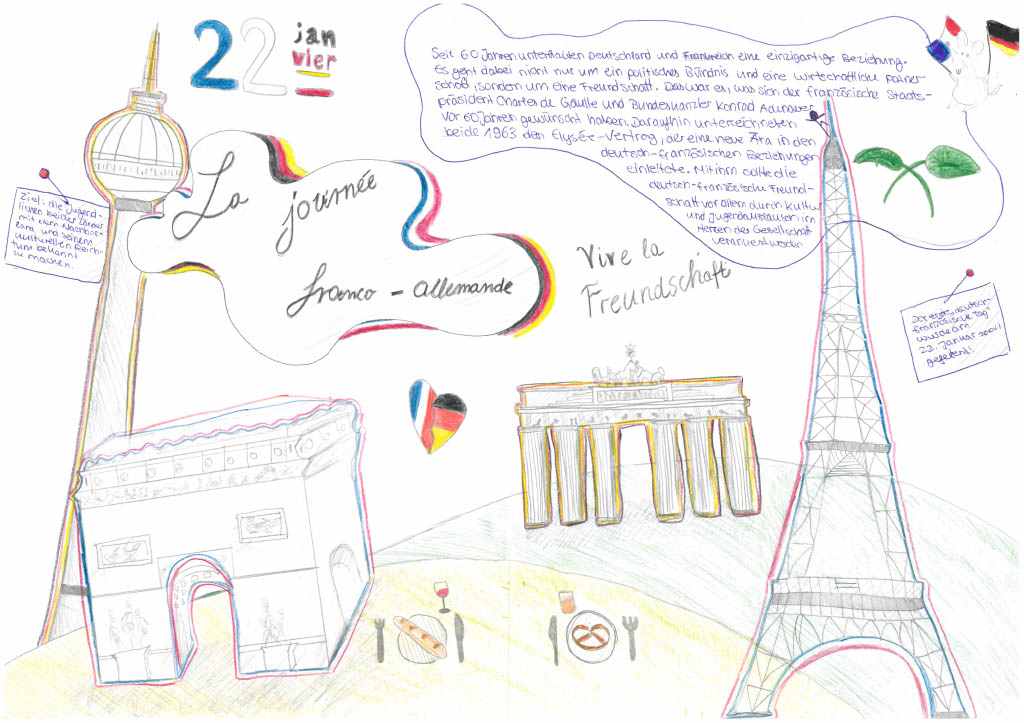 22 jan
vier
Seit 60 Jahren unterhalten Deutschland und Frankreich eine einzigartige Beziehung.
Es geht dabei nicht nur um ein politisches Bündnis und eine wirtschaftliche Partner-
schaft, sondern um eine Freundschaft. Das war es, was sich der französische Staats-
präsident Charles de Gaulle und Bundeskanzler Konrad Adenauer
vor 60 Jahren gewünscht haben. Daraufhin unterzeichneten
beide 1963 den Elysée-Vertrag, der eine neue Ära in den
deutsch-französischen Beziehungen
einleitete. Mit ihm sollte die
deutsch-französische Freund-
schaft vor allem durch Kultur
und Jugendaustausch im
Herzen der Gesellschaft
verankert werden
Ziel: die Jugend-
lichen beider Länder
mit dem Nachbar-
land und seinem
kulturellen Reich-
tum bekannt
zu machen.
La
journée
franco-allemande
Vive la
Freundschaft
Der erste „deutsch-
französische Tag"
wurde am
22. Januar 2004
gefeiert!